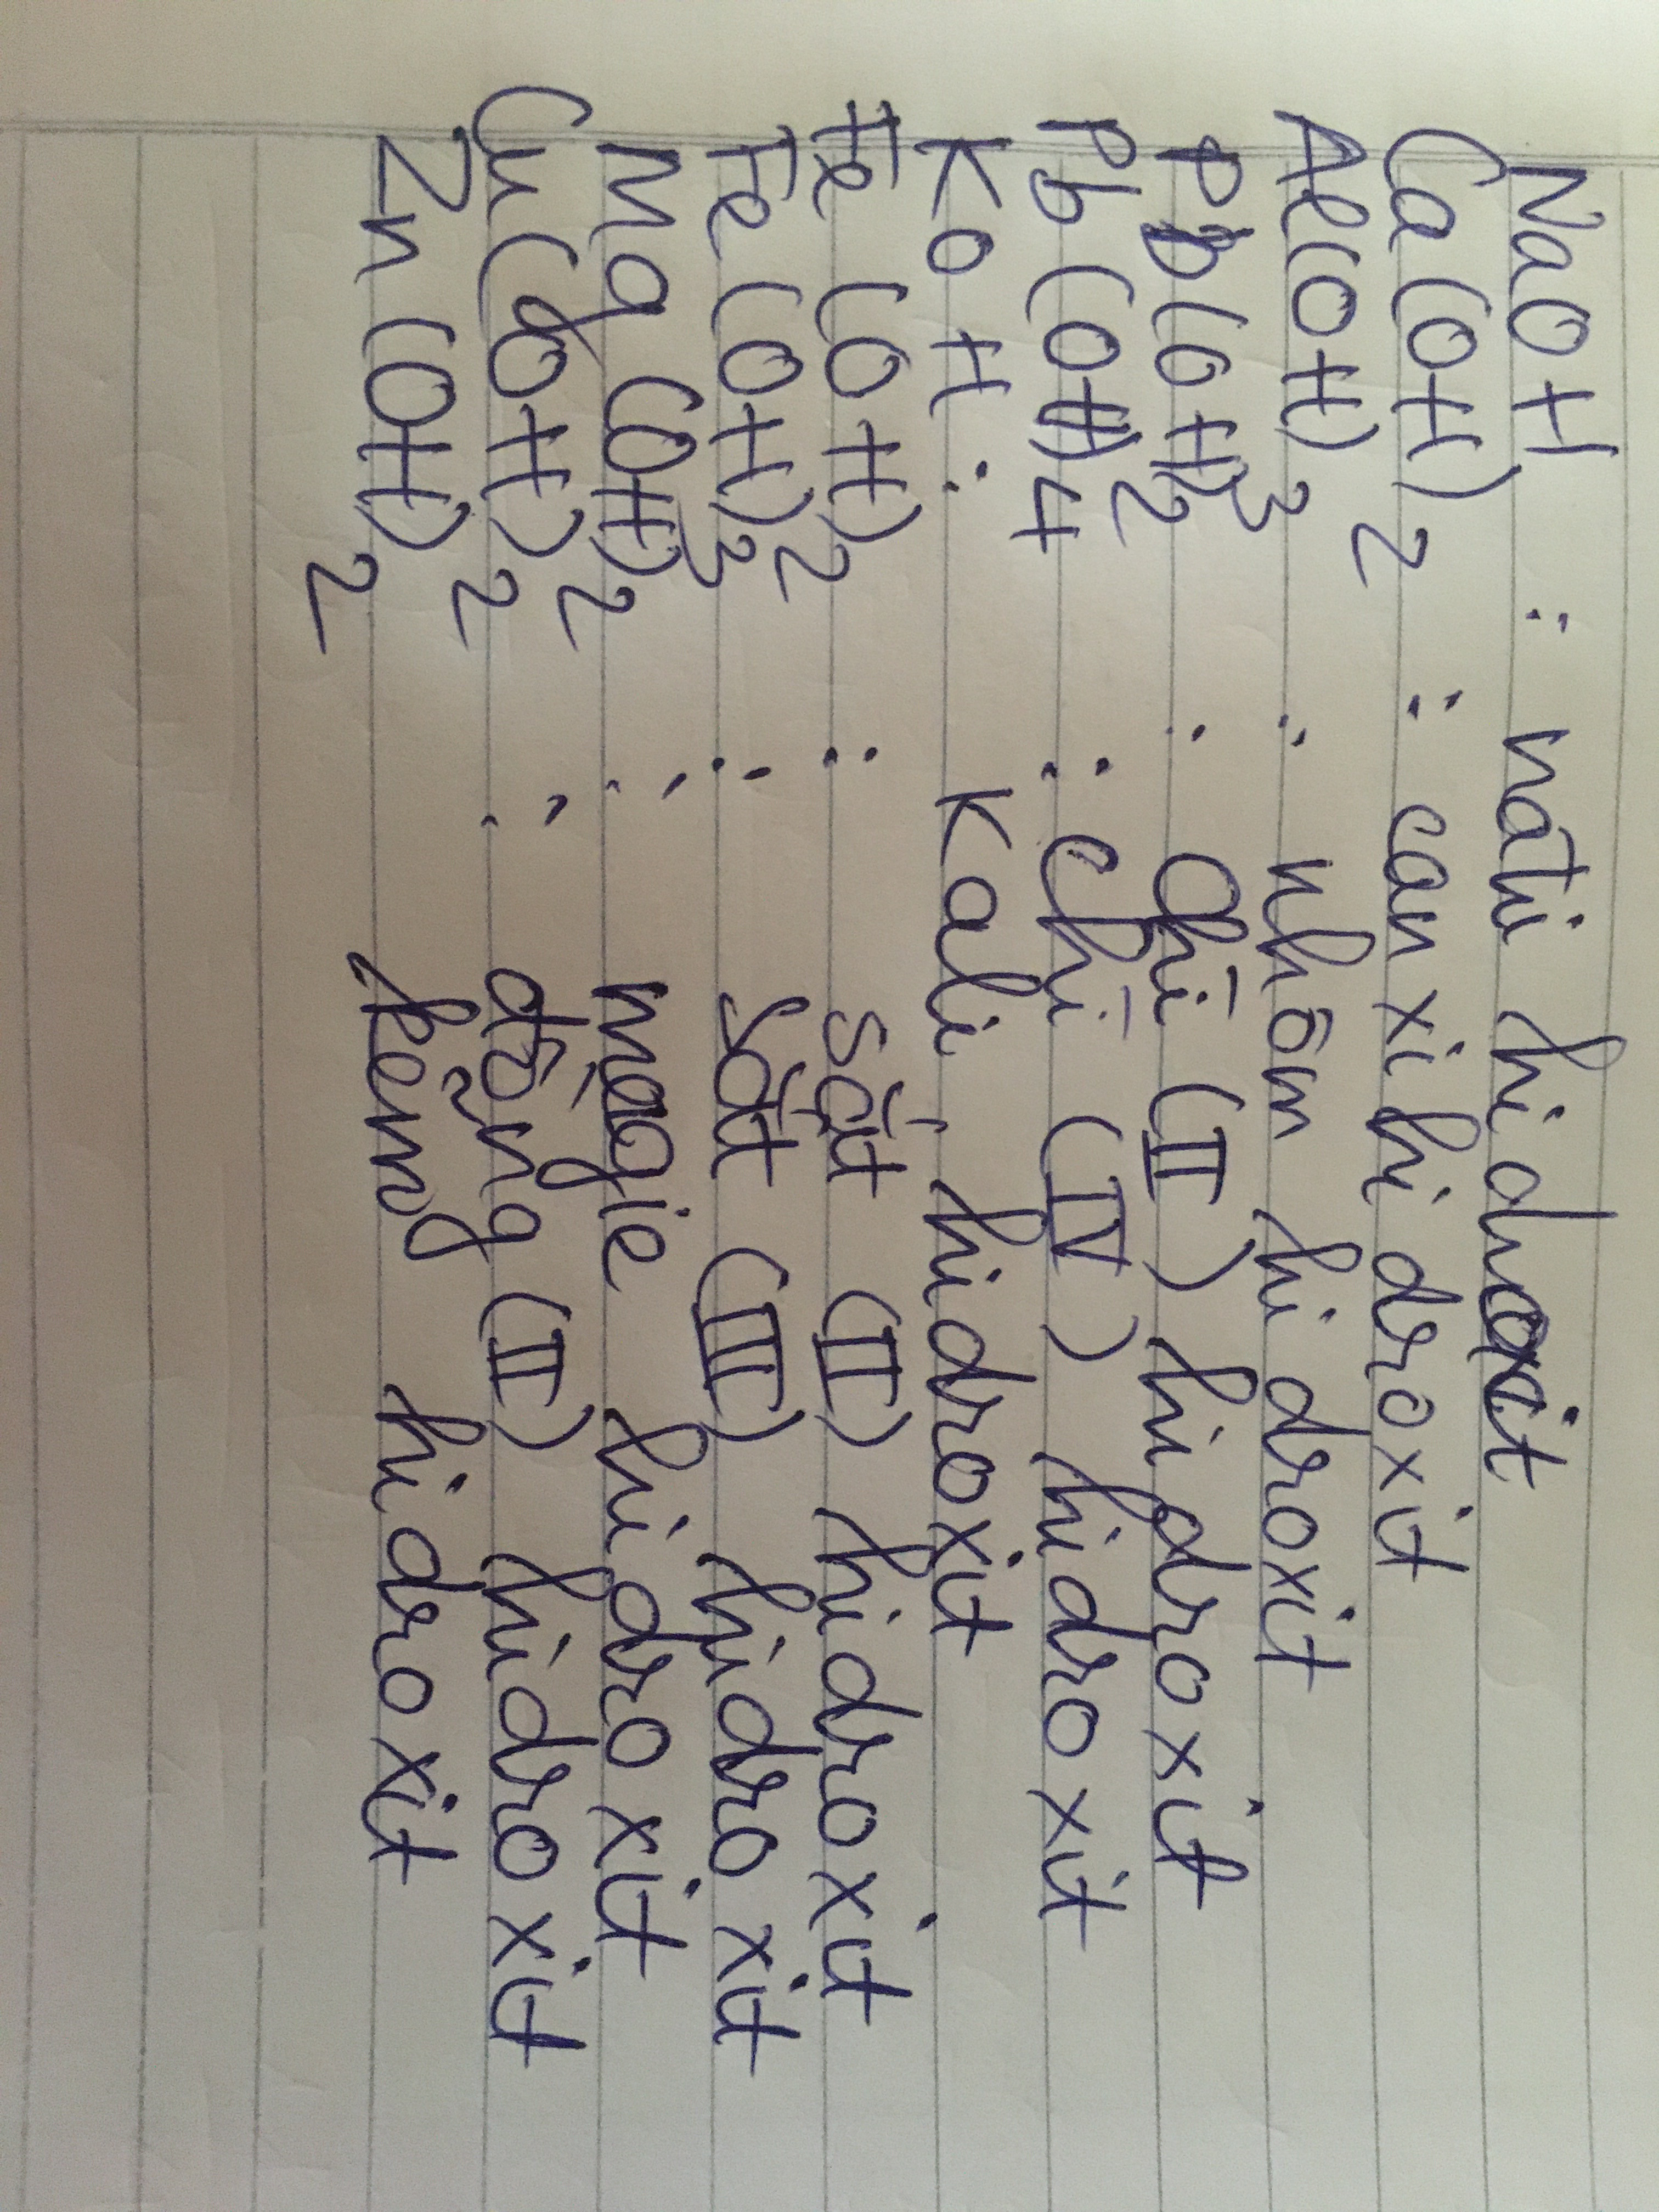 NaOH : natri hidroxit
Ca(OH)2 : canxi hidroxit
Al(OH)3 : nhôm hidroxit
Pb(OH)2 : chì (II) hidroxit
Pb(OH)4 : chì (IV) hidroxit
KOH : Kali hidroxit
Fe(OH)2 : sắt (II) hidroxit
Fe(OH)3 : sắt (III) hidroxit
Mg(OH)2 : magie hidroxit
Cu(OH)2 : đồng (II) hidroxit
Zn(OH)2 kemg hidroxit